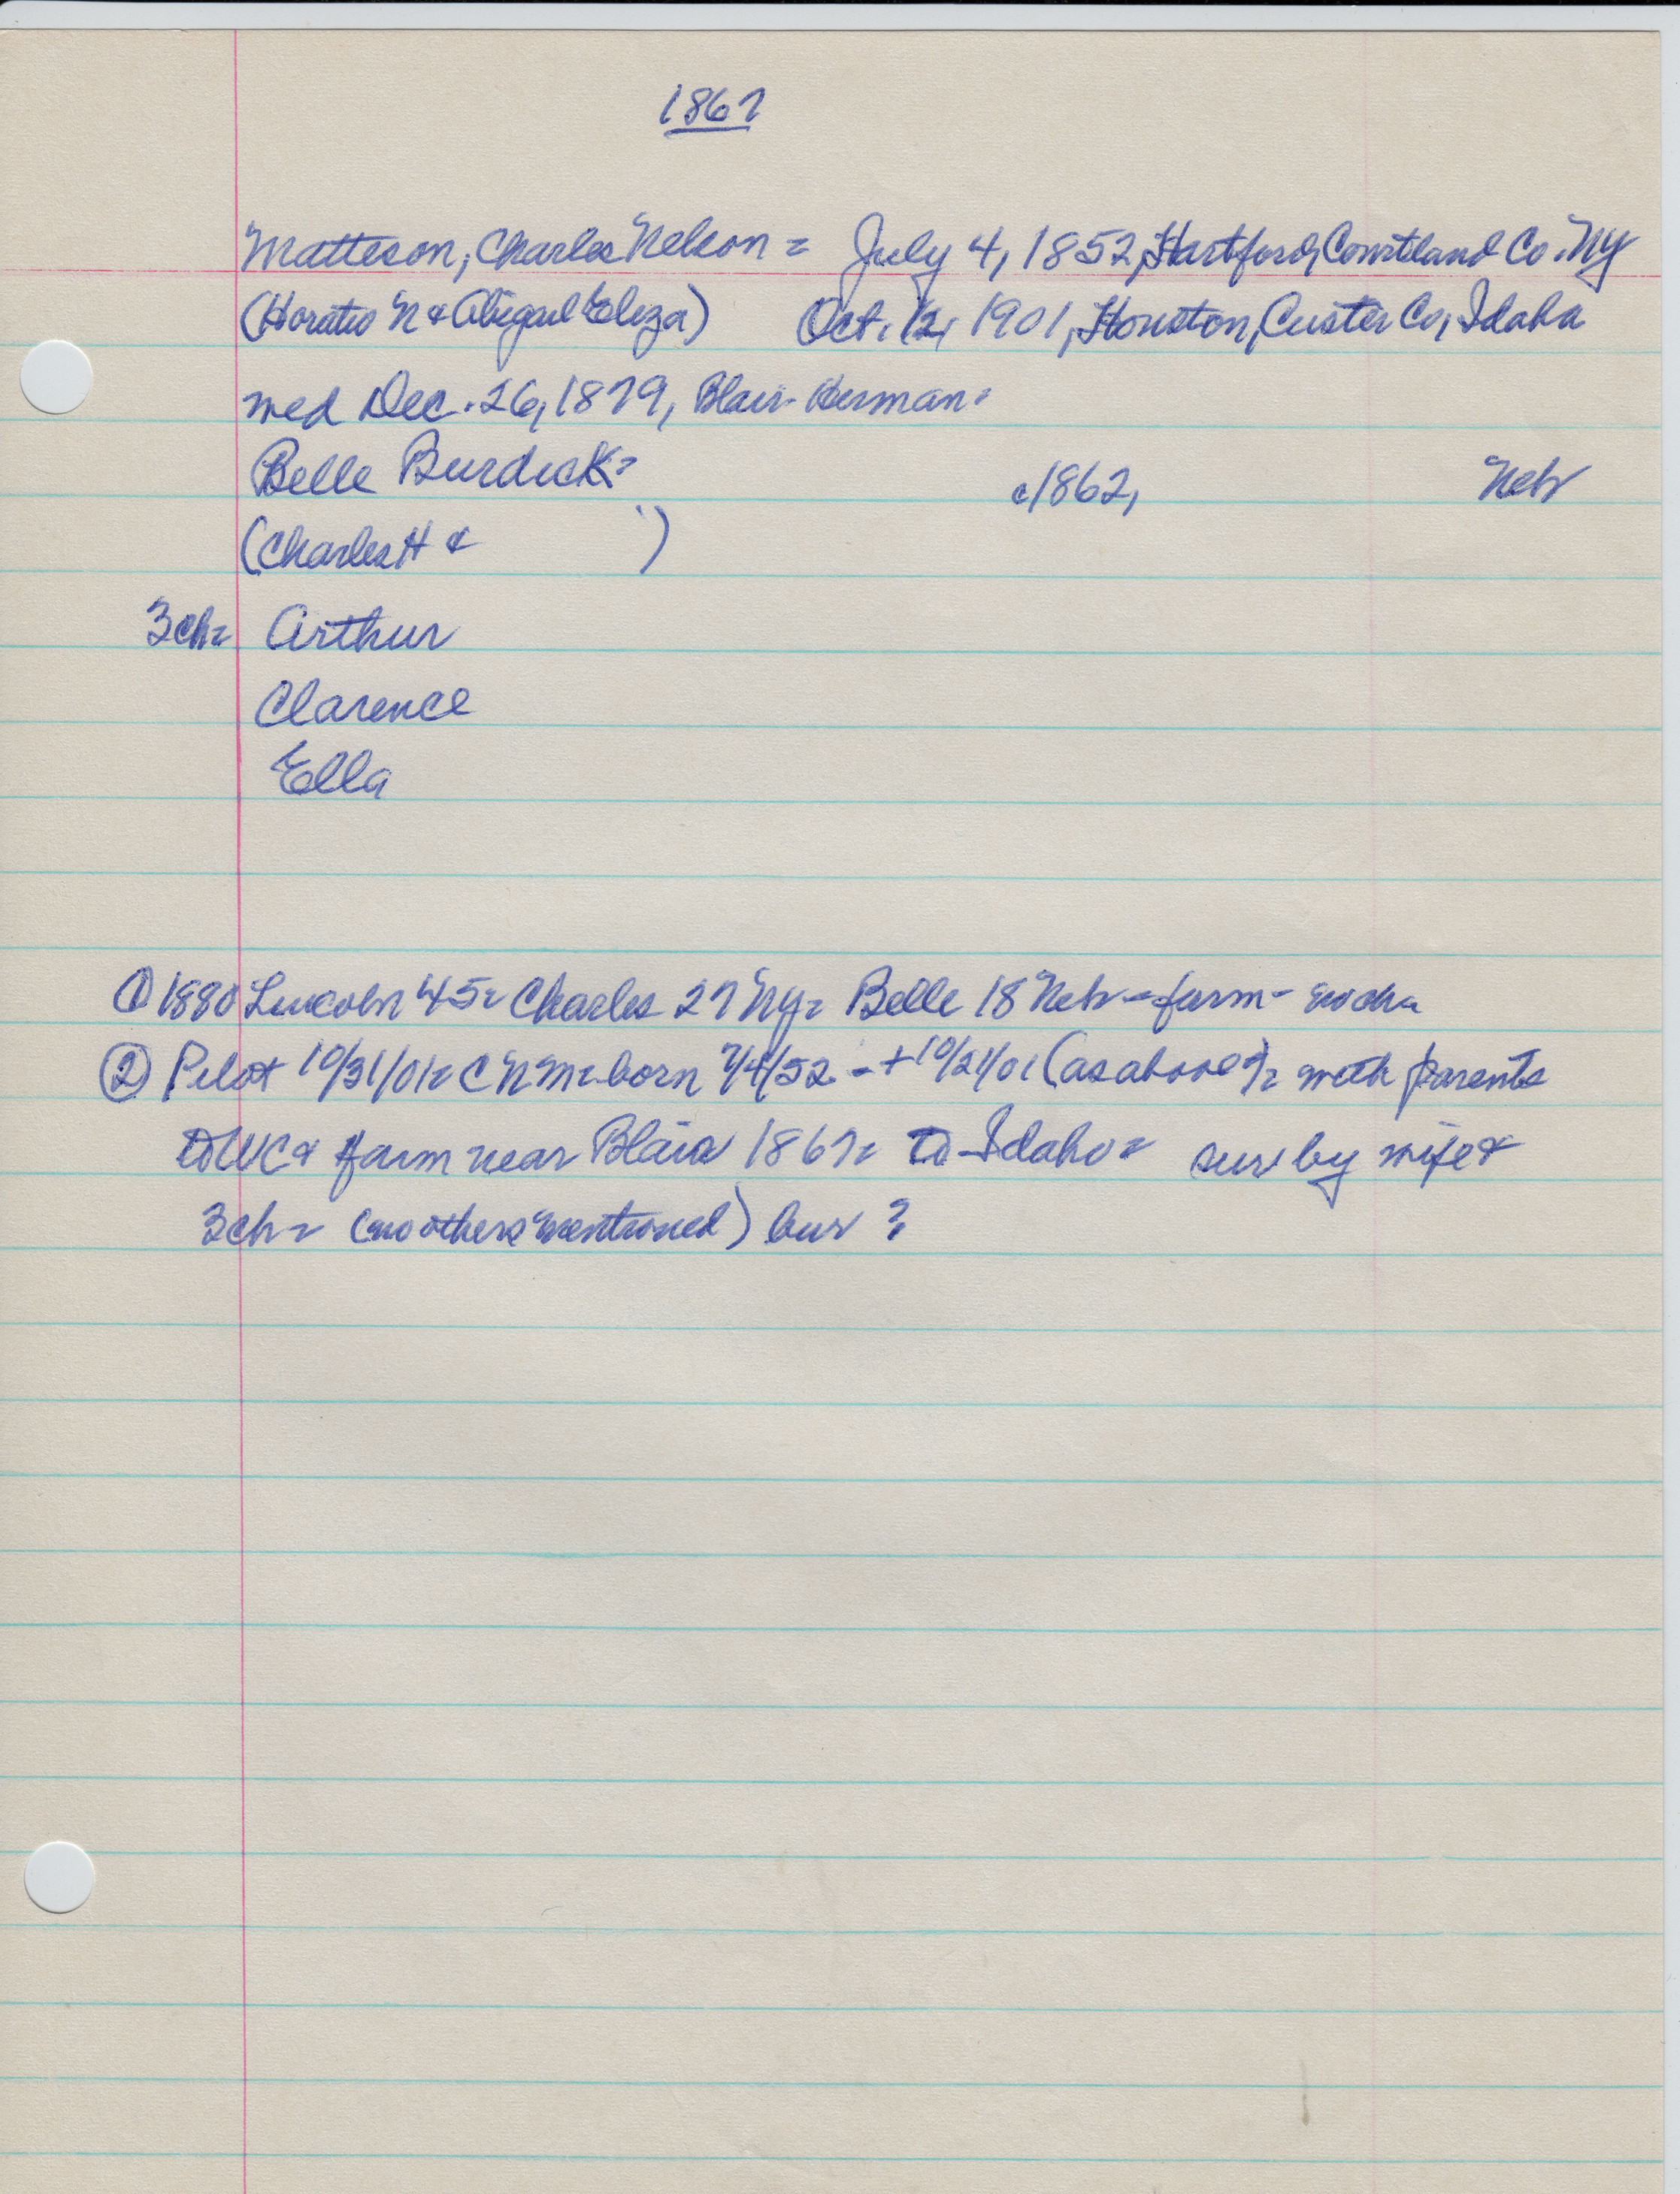 1867
Matteson, Charles Nelson = July 4, 1852, Hartford, Courtland Co. NY
(Horatio N & Abigail Eliza) Oct. 12, 1901, Houston, Custer Co, Idaho
med Dec. 26, 1879, Blair- Herman=
Belle Burdick= c1862, Neb
(Charles H & )
3ch= Arthur
Clarence
Ella
① 1880 Lincoln 45= Charles 27 NY= Belle 18 Neb - farm - no ch=
② Pilot 10/31/01= C N M= born 7/4/52 - + 10/21/01 (as above?)= with parents
to WC & farm near Blair 1867= to Idaho= sur by wife &
3ch= (no others mentioned) bur ?